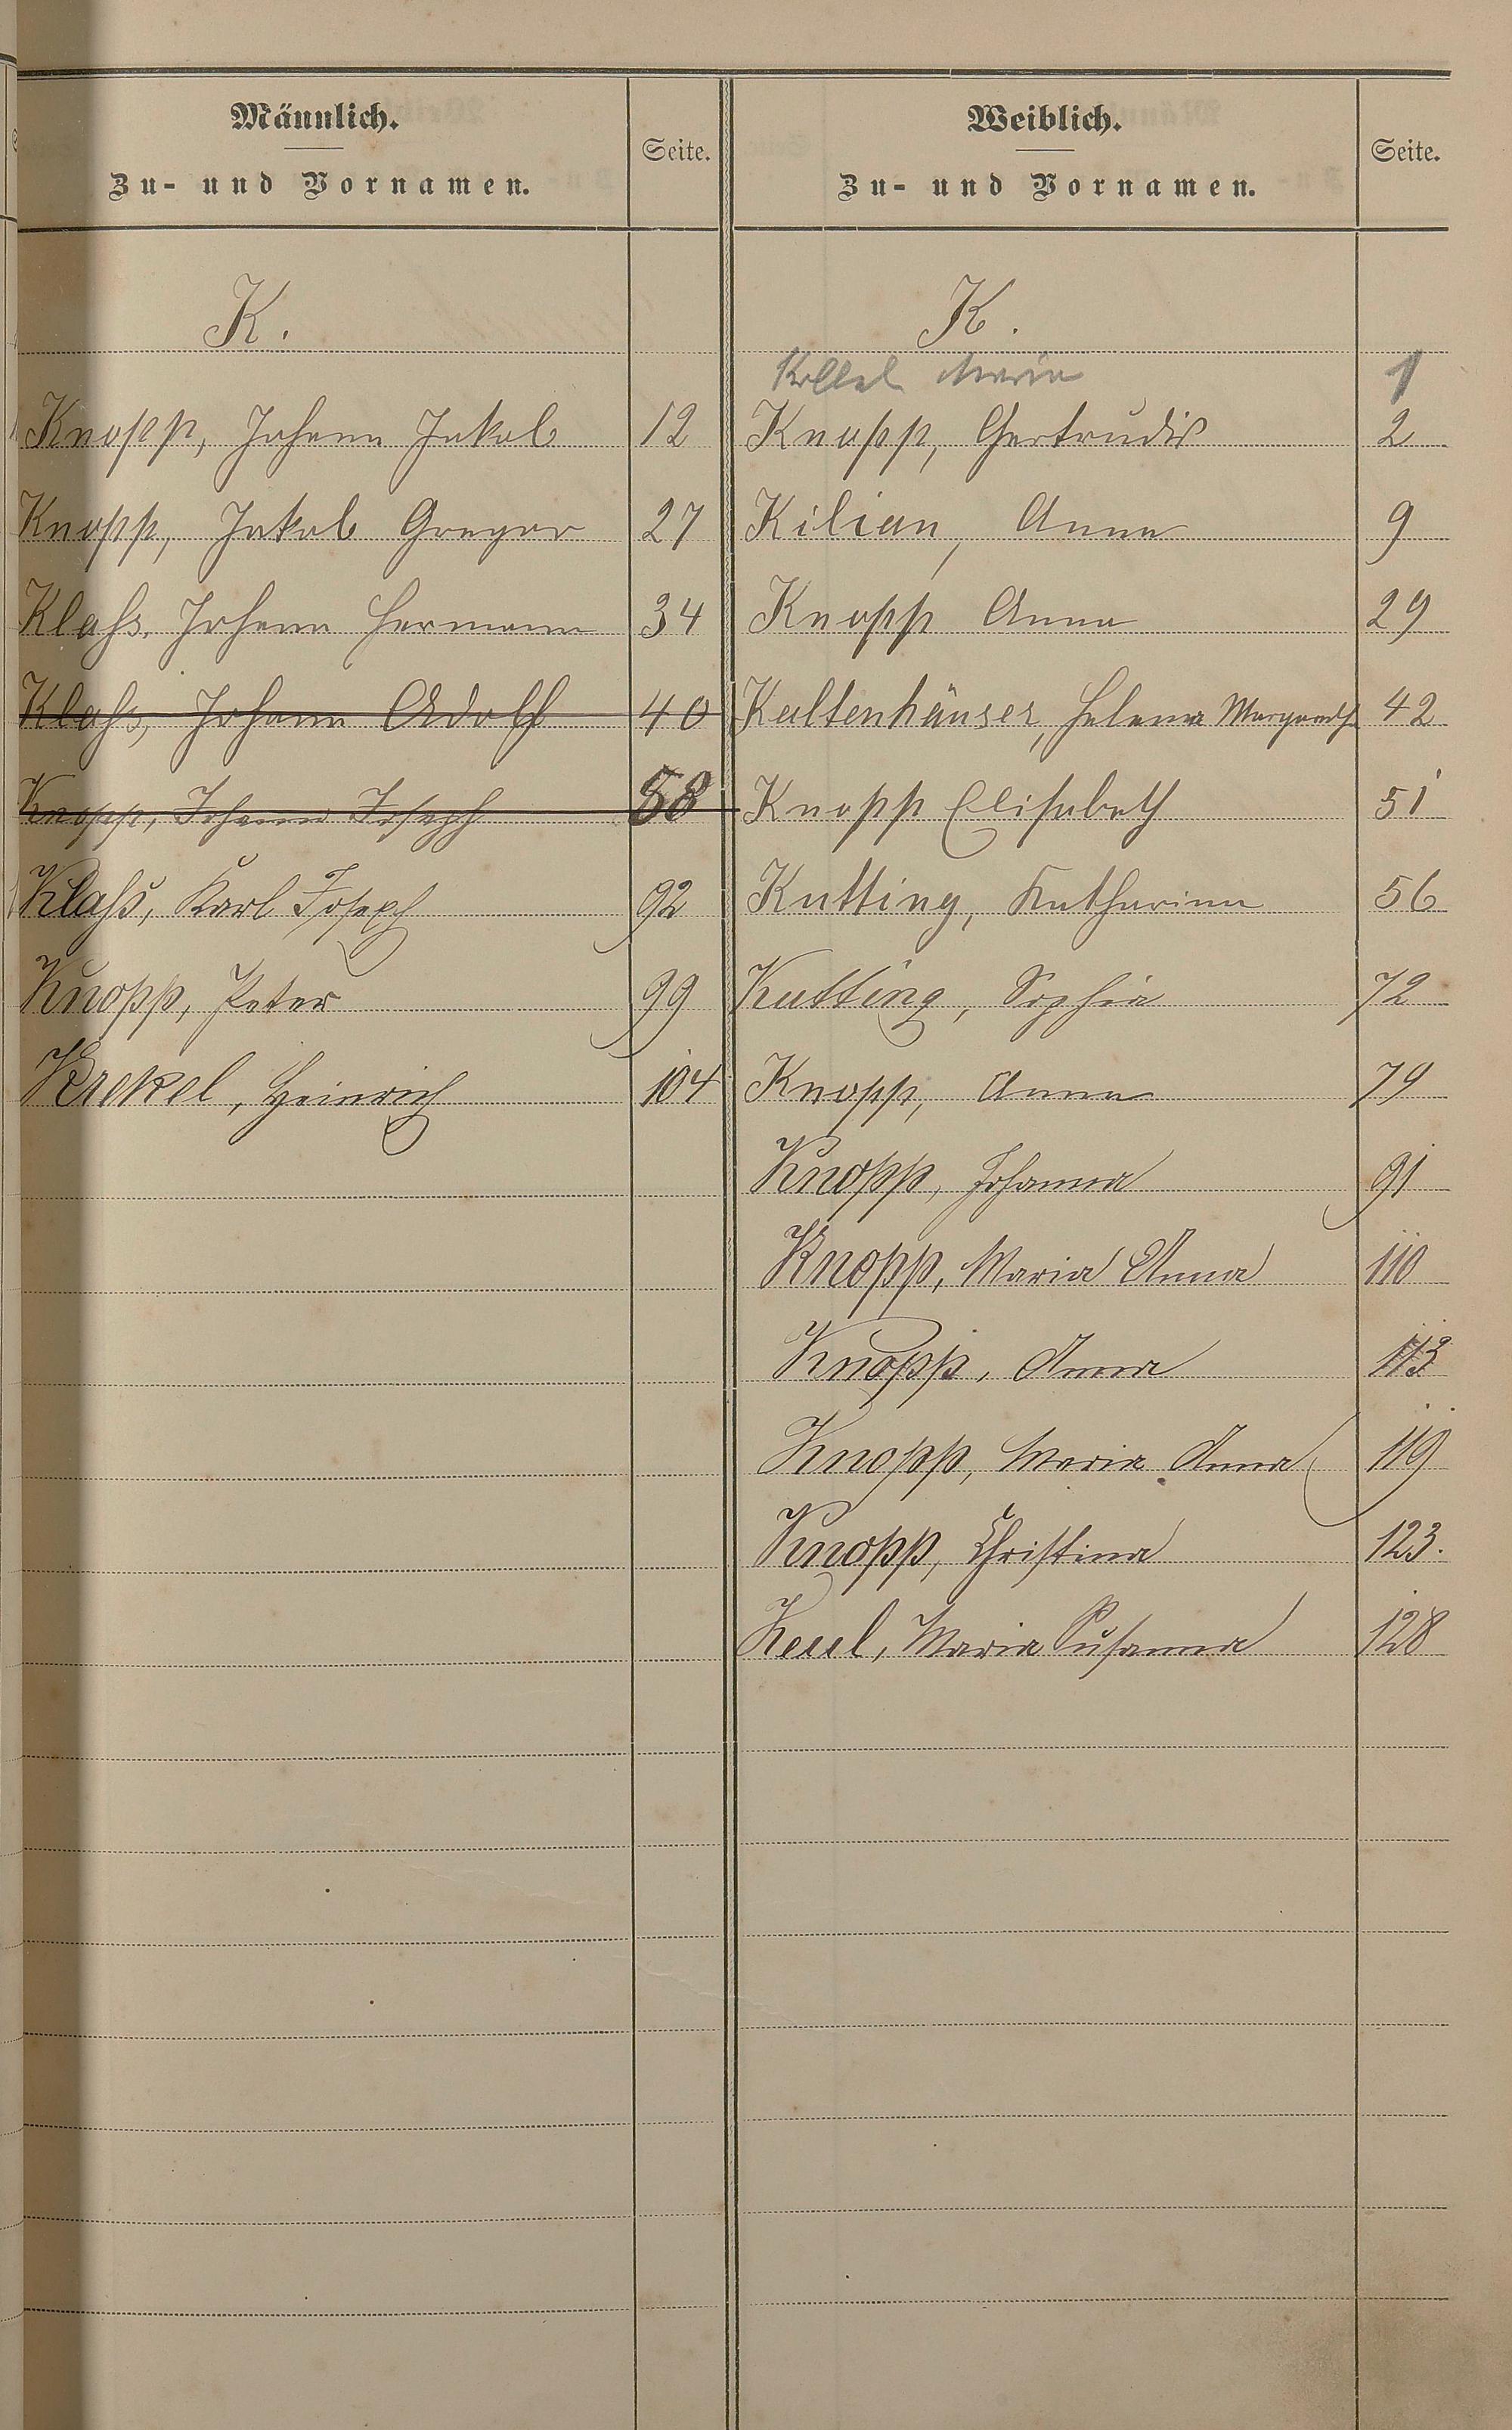 Männlich.
Zu- und Vornamen.
Seite.
K.
Knopp, Johann Jakob 12
Knopp, Jakob Gregor 27
Klahs, Johann Hermann 34
Klahs, Johann Adolf 40
Knopp, Johann Joseph 58
Klahs, Karl Joseph 92
Knopp, Peter 99
Krekel, Heinrich 104
Weiblich.
Zu- und Vornamen.
Seite.
K.
Maria 1
Knopp, Gertrudis 2
Kilian, Anna 9
Knopp Anna 29
Kaltenhäuser, Helena Margareth 42
Knopp Elisabeth 51
Kutting, Katharina 56
Kutting, Sophia 72
Knopp, Anna 79
Knopp, Johanna 91
Knopp, Maria Anna 110
Knopp, Anna
Knopp, Maria Anna 119
Knopp, Christina 123.
Keul, Maria Susanna 128